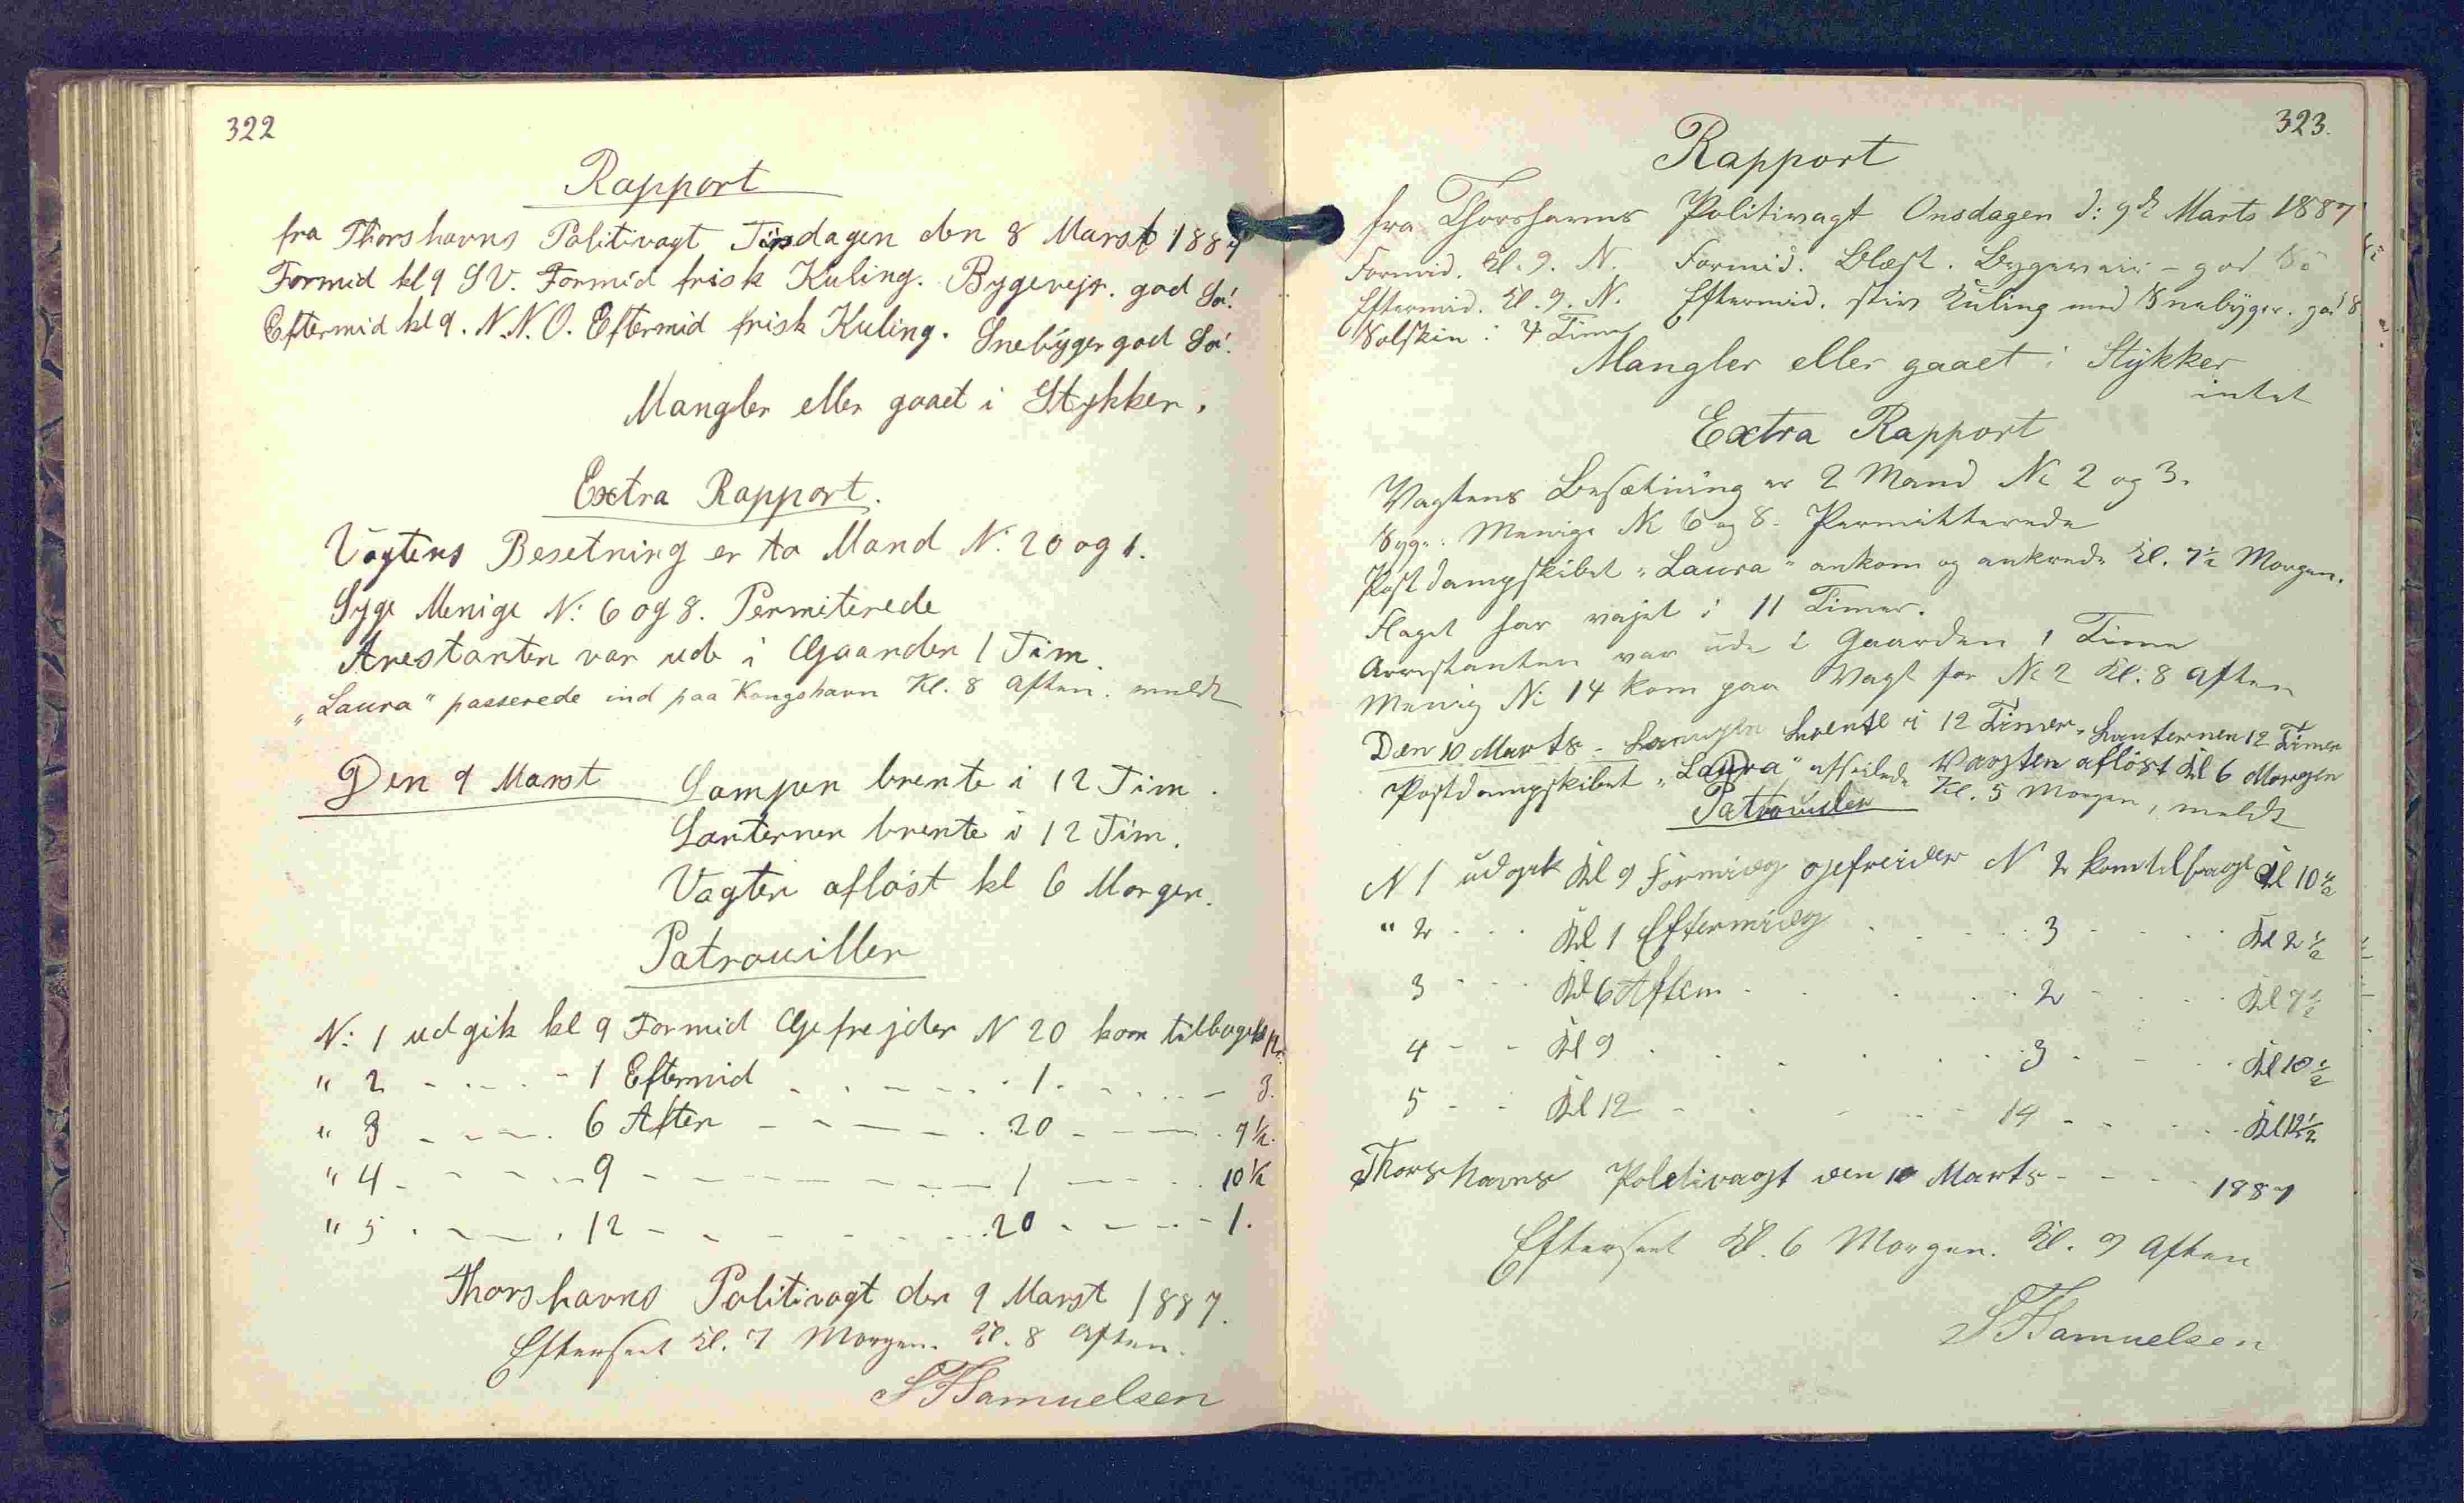 322
Rapport
fra Thorshavns Politivagt Tirsdagen den 8 Marst 1887
Formid kl 9 SV. Formid frisk Kuling. Bygevejr. god Sø!
Eftermid kl 9. N.N.O. Eftermid frisk Kuling. Snebyger god Sø!
Mangler eller gaaet i Stykker.
Extra Rapport.
Vagtens Besetning er to Mand N. 20 og 1.
Syge Menige N: 6 og 8. Permiterede
Arestanten var ude i Gaarden 1 Tim.
"Laura" passerede ind paa Kongshavn Kl. 8 Aften. meldt
Den 9 Marst Lampen brente i 12 Tim.
Lanternen brente i 12 Tim.
Vagten afløst kl 6 Morgen.
Patrouiller
N: 1 udgik kl 9 Formid Gefrejder N 20 kom tilbage
" 2 - - - - 1 Eftermid - - - - - 1 - - - - 3.
" 3 - - - - 6 Aften - - - - - 20 - - - - 7½.
" 4 - - - - 9 - - - - - - - 1 - - - - 10½
" 5 - - - - 12 - - - - - - 20 - - - - 1.
Thorshavns Politivagt den 9 Marst 1887.
Efterseet Kl. 7 Morgen. Kl. 8 Aften.
SFSamuelsen
323.
Rapport
fra Thorshavns Politivagt Onsdagen d: 9de Marts 1887
Formid. Kl. 9. N. Formid. Blæst. Bygeveir - god Sø
Eftermid. Kl. 9. N. Eftermid. stiv Kuling med Snebyger. god S
Solskin: 4 Time
Mangler eller gaaet i Stykker
intet
Extra Rapport
Vagtens Besætning er 2 Mand No 2 og 3.
Syge: Menige No 6 og 8. Permitterede
Postdampskibet "Laura" ankom og ankrede Kl. 7½ Morgen.
Flaget har vajet i 11 Timer.
Arrestanten var ude i Gaarden 1 Time
Menig No 14 kom paa Vagt for No 2 Kl. 8 Aften
Den 10 Marts - Lampen brente i 12 Timer, Lanternen 12 Timer
Vagten afløst Kl 6 Morgen
Postdampskibet "Laura" afseilede Kl. 5 Morgen, meldt
Patrouiller
N 1 udgik Kl 9 Formidag gefreider N 2 kom tilbage Kl 10½
" 2 - - - Kl 1 Eftermidag - - - - 3 - - - Kl 2½
3 - - - Kl 6 Aften - - - - 2 - - - Kl 7½
4 - - Kl 9 - - - - 3 - - - Kl 10½
5 - - Kl 12 - - - - 14 - - - Kl 12½
Thorshavns Politivagt den 10 Marts - - - 1887
Efterseet Kl. 6 Morgen. Kl. 9 Aften
SFSamuelsen